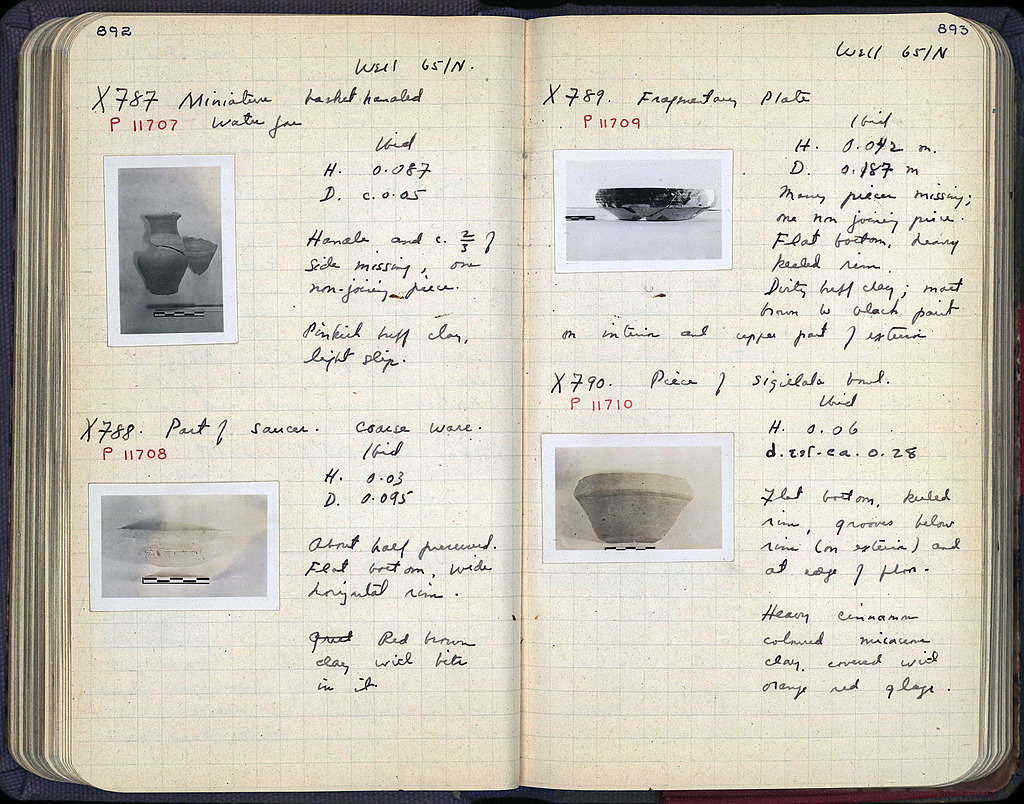 892
Well 65/N.
X787 Miniature basket handled
P 11707 Water Jar
Ibid
H. 0.087
D. c. 0.05
Handle and c. 2/3 of
side missing, one
non-joining piece.
Pinkish buff clay,
light slip.
X788. Part of saucer. Coarse ware.
P 11708
Ibid
H. 0.03
D. 0.095
About half preserved.
Flat bottom, wide
horizontal rim.
Red brown
clay with bits
in it.
893
Well 65/N
X789. Fragmentary Plate
P 11709
Ibid
H. 0.042 m.
D. 0.187 m
Many pieces missing;
one non joining piece.
Flat bottom, heavy
keeled rim.
Dirty buff clay; matt
brown to black paint
on interior and upper part of exterior
X790. Piece of sigillata bowl.
P 11710
Ibid
H. 0.06
d. est. ca. 0.28
Flat bottom, keeled
rim, grooves below
rim (on exterior) and
at edge of floor.
Heavy cinnamon
coloured micaceous
clay, covered with
orange red glaze.